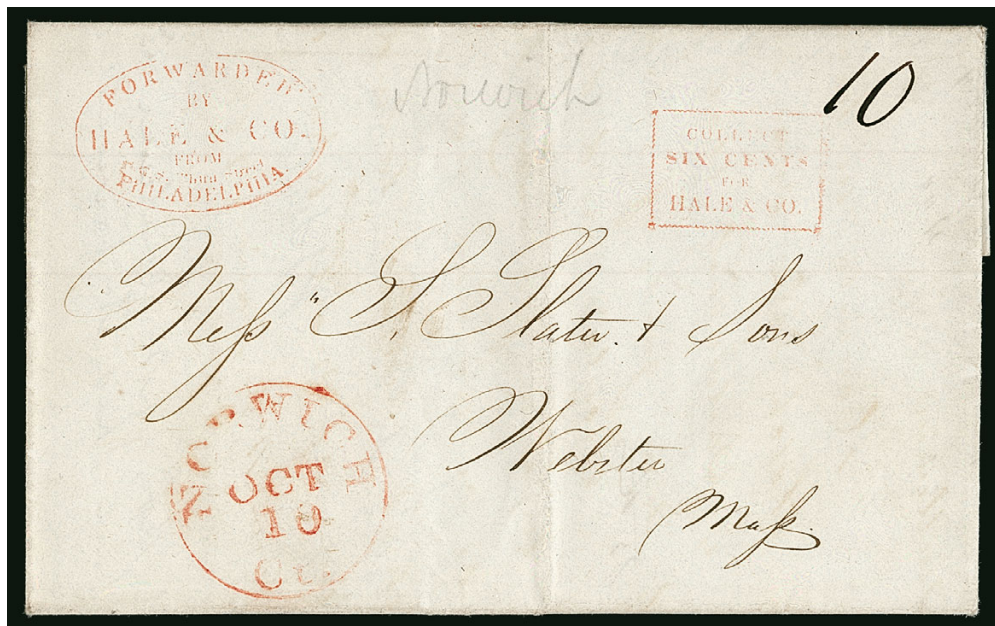 FORWARDED
BY
HALE & CO.
FROM
PHILADELPHIA.
Norwich
10
COLLECT
SIX CENTS
FOR
HALE & CO.
Mess" S. Slater & Sons
Webster
Mass.
NORWICH
OCT
10
Ct.